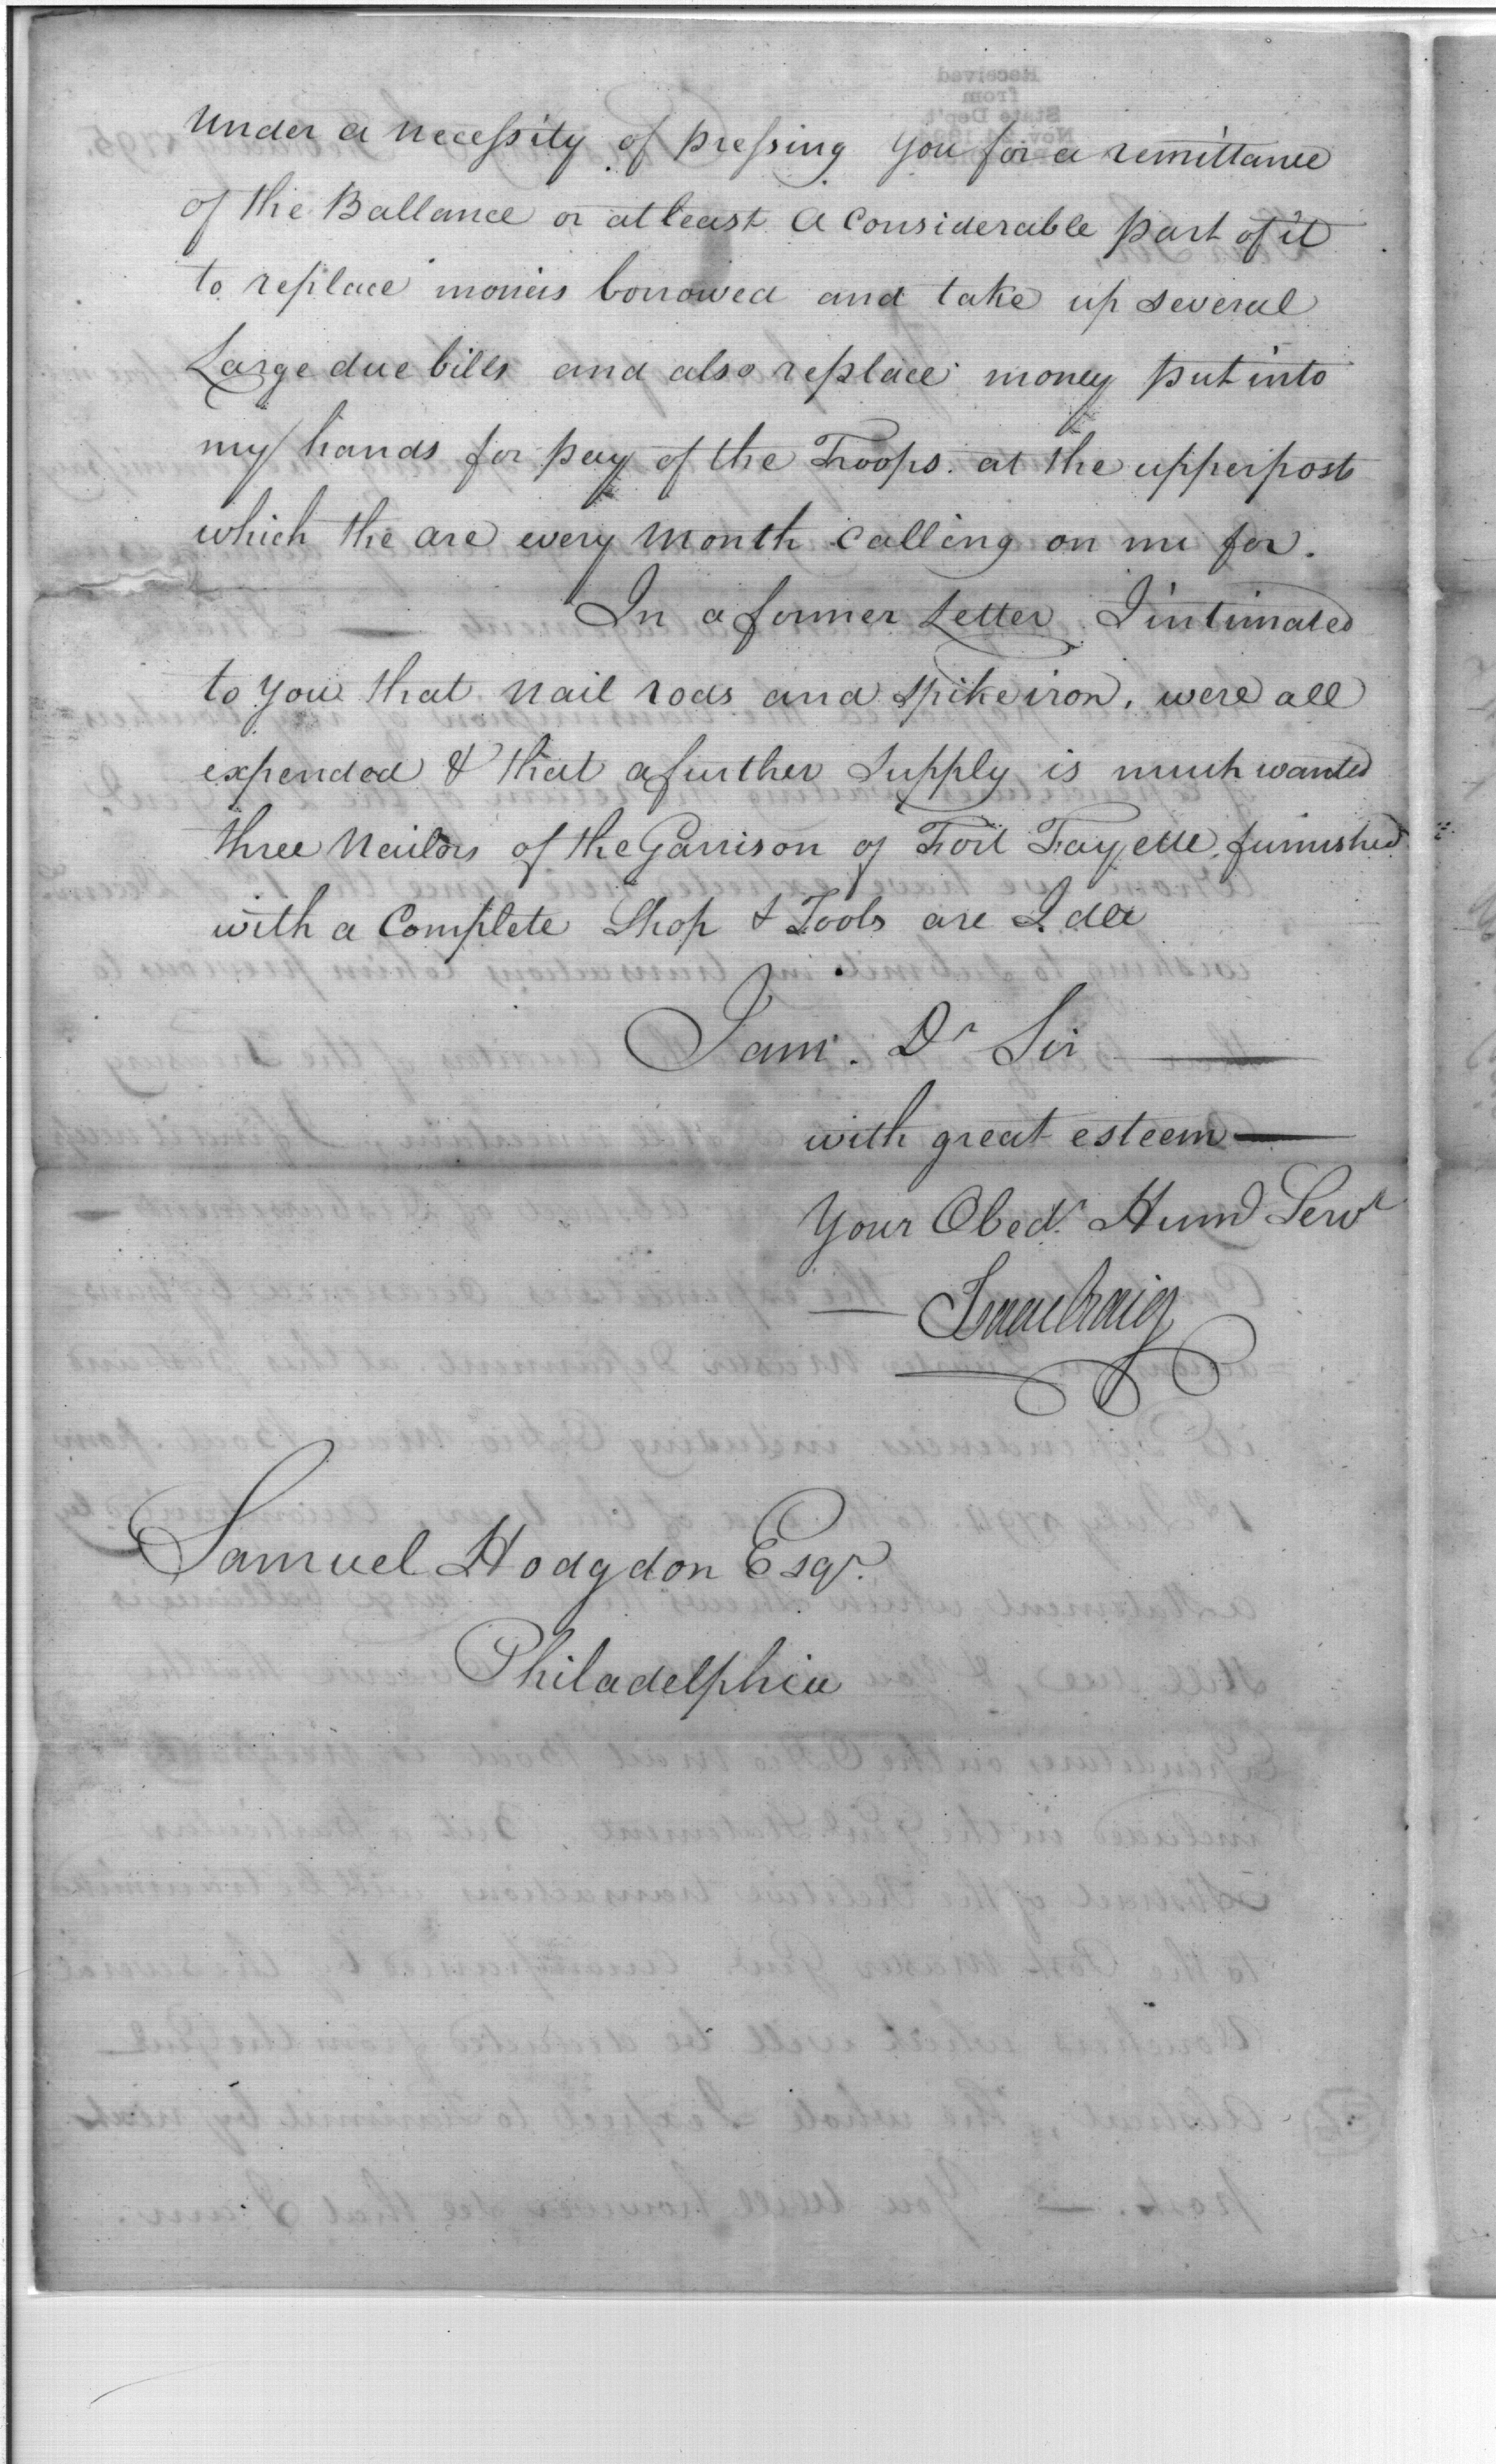 under a necessity of pressing you for a remittance
of the Ballance or atleast a Considerable part of it
to replace monies borrowed and take up several
Large due bills and also replace money put into
my hands for pay of the Troops at the upper posts
which the are every Month Calling on me for.
In a former Letter I intimated
to you that nail rods and spike iron, were all
expended & that a further Supply is much wanted
three Nailors of the Garrison of Fort Fayette, furnished
with a Complete Shop & Tools are Idle
I am. Dr Sir
with great esteem
Your Obedt. Hum Servt
Isaac Craig
Samuel Hodgdon Esqr.
Philadelphia